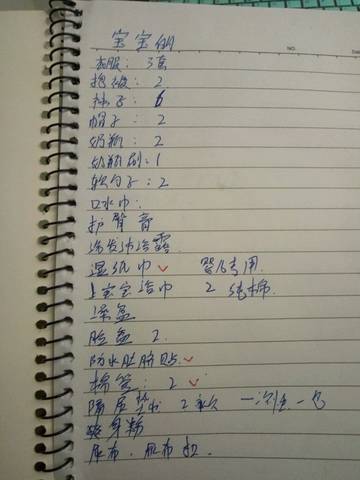 宝宝
NO.
衣服：3套
抱被：2
袜子 6
帽子：2
奶瓶：2
奶瓶刷：1
软勺子：2
口水巾：
护臀膏
洗发沐浴露
湿纸巾 ✓ 婴儿专用
宝宝浴巾 2 纯棉
澡盆
脸盆 2
防水肚脐贴 ✓
棉签：2 ✓
隔尿垫 2 一次性 一包
爽身粉
尿布.尿布扣.